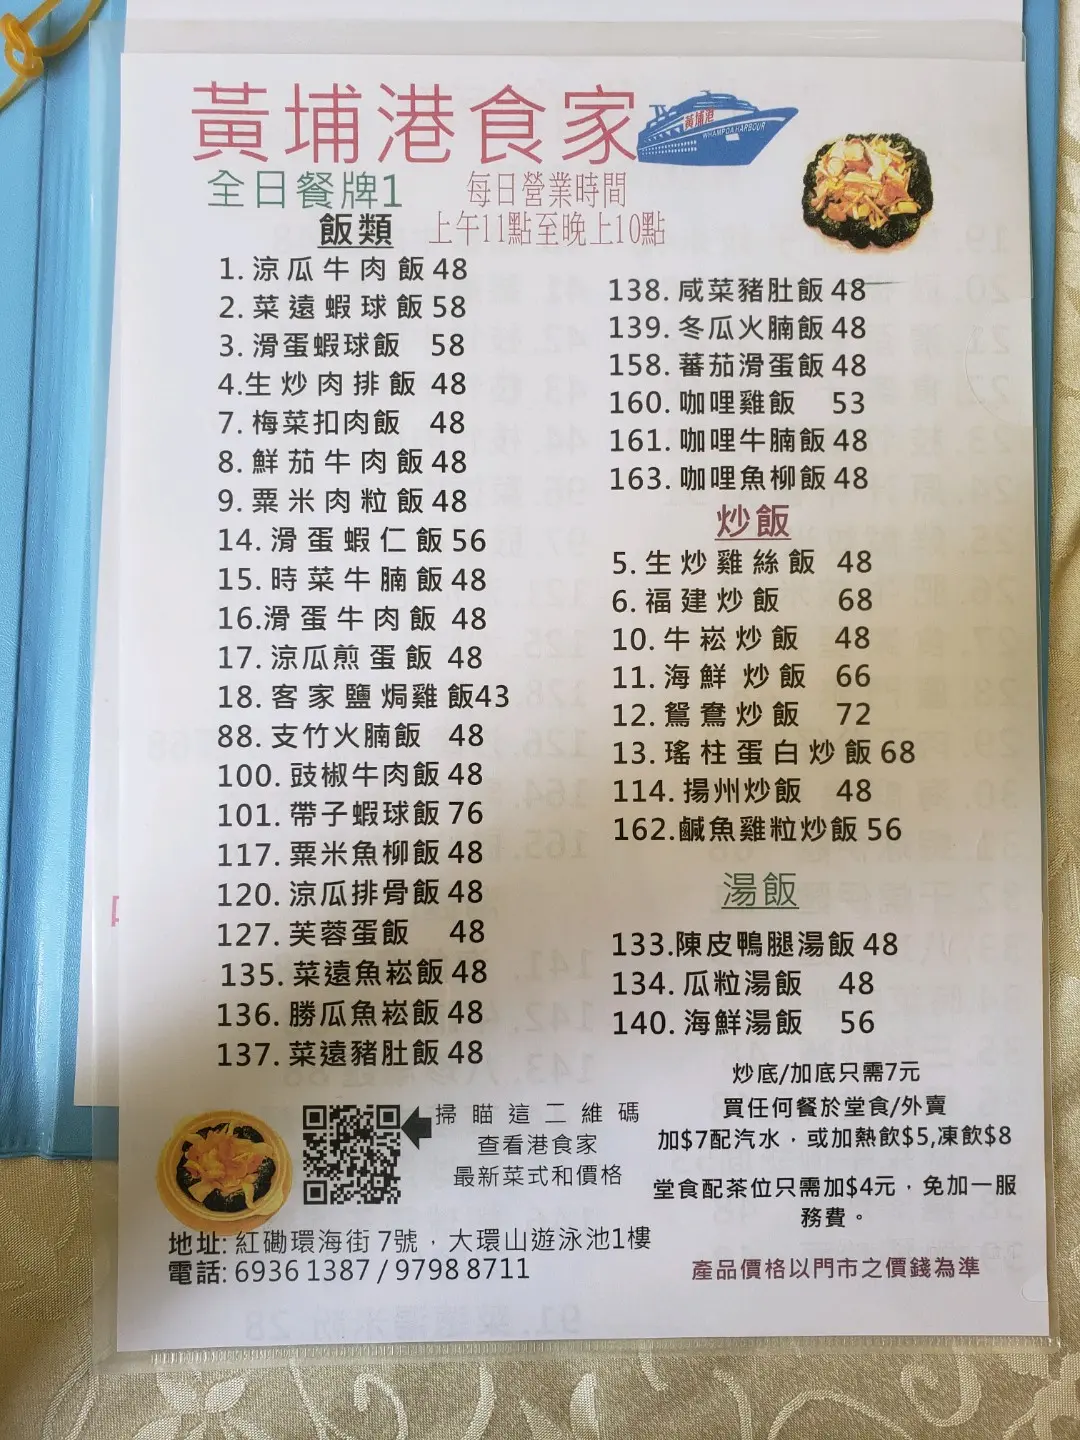 黃埔港食家
黃埔港
WHAMPOA HARBOUR
全日餐牌1
每日營業時間
上午11點至晚上10點
飯類
1. 涼瓜牛肉飯 48
2. 菜遠蝦球飯 58
3. 滑蛋蝦球飯 58
4.生炒肉排飯 48
7. 梅菜扣肉飯 48
8. 鮮茄牛肉飯 48
9. 粟米肉粒飯 48
14. 滑蛋蝦仁飯 56
15. 時菜牛腩飯 48
16.滑蛋牛肉飯 48
17. 涼瓜煎蛋飯 48
18. 客家鹽焗雞飯43
88. 支竹火腩飯 48
100. 豉椒牛肉飯 48
101. 帶子蝦球飯 76
117. 粟米魚柳飯 48
120. 涼瓜排骨飯 48
127. 芙蓉蛋飯 48
135. 菜遠魚崧飯 48
136. 勝瓜魚崧飯 48
137. 菜遠豬肚飯 48
138. 咸菜豬肚飯 48
139. 冬瓜火腩飯 48
158. 蕃茄滑蛋飯 48
160. 咖哩雞飯 53
161. 咖哩牛腩飯 48
163. 咖哩魚柳飯 48
炒飯
5. 生炒雞絲飯 48
6. 福建炒飯 68
10. 牛崧炒飯 48
11. 海鮮 炒飯 66
12. 鴛鴦炒飯 72
13. 瑤柱蛋白炒飯 68
114. 揚州炒飯 48
162.鹹魚雞粒炒飯 56
湯飯
133.陳皮鴨腿湯飯 48
134. 瓜粒湯飯 48
140. 海鮮湯飯 56
炒底/加底只需7元
買任何餐於堂食/外賣
加$7配汽水，或加熱飲$5,凍飲$8
堂食配茶位只需加$4元，免加一服
務費。
掃瞄這二維碼
查看港食家
最新菜式和價格
地址: 紅磡環海街 7號，大環山遊泳池1樓
電話: 6936 1387 / 9798 8711
產品價格以門市之價錢為準